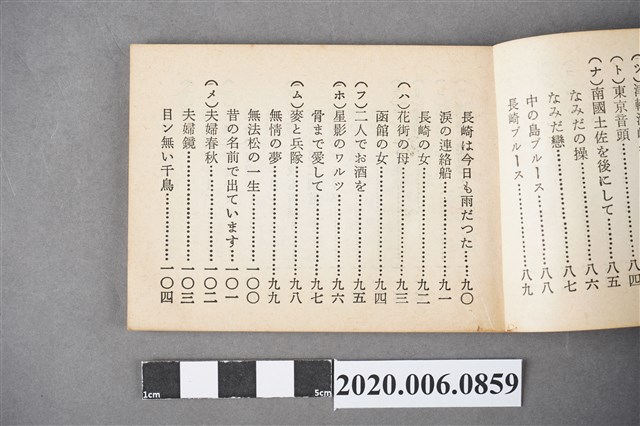 (ト)東京音頭…………八五
(ナ)南國土佐を後にして……八六
なみだの操…………八七
なみだ戀…………八八
中の島ブルース…………八八
長崎ブルース…………八九
長崎は今日も雨だつた……九〇
涙の連絡船…………九一
長崎の女…………九二
(ハ)花街の母…………九三
函館の女…………九四
(フ)二人でお酒を…………九五
(ホ)星影のワルツ…………九六
骨まで愛して…………九七
(ム)麥と兵隊…………九八
無情の夢…………九九
無法松の一生…………一〇〇
昔の名前で出ています……一〇一
(メ)夫婦春秋…………一〇二
夫婦鏡…………一〇三
目ン無い千鳥…………一〇四
1cm
5cm
2020.006.0859